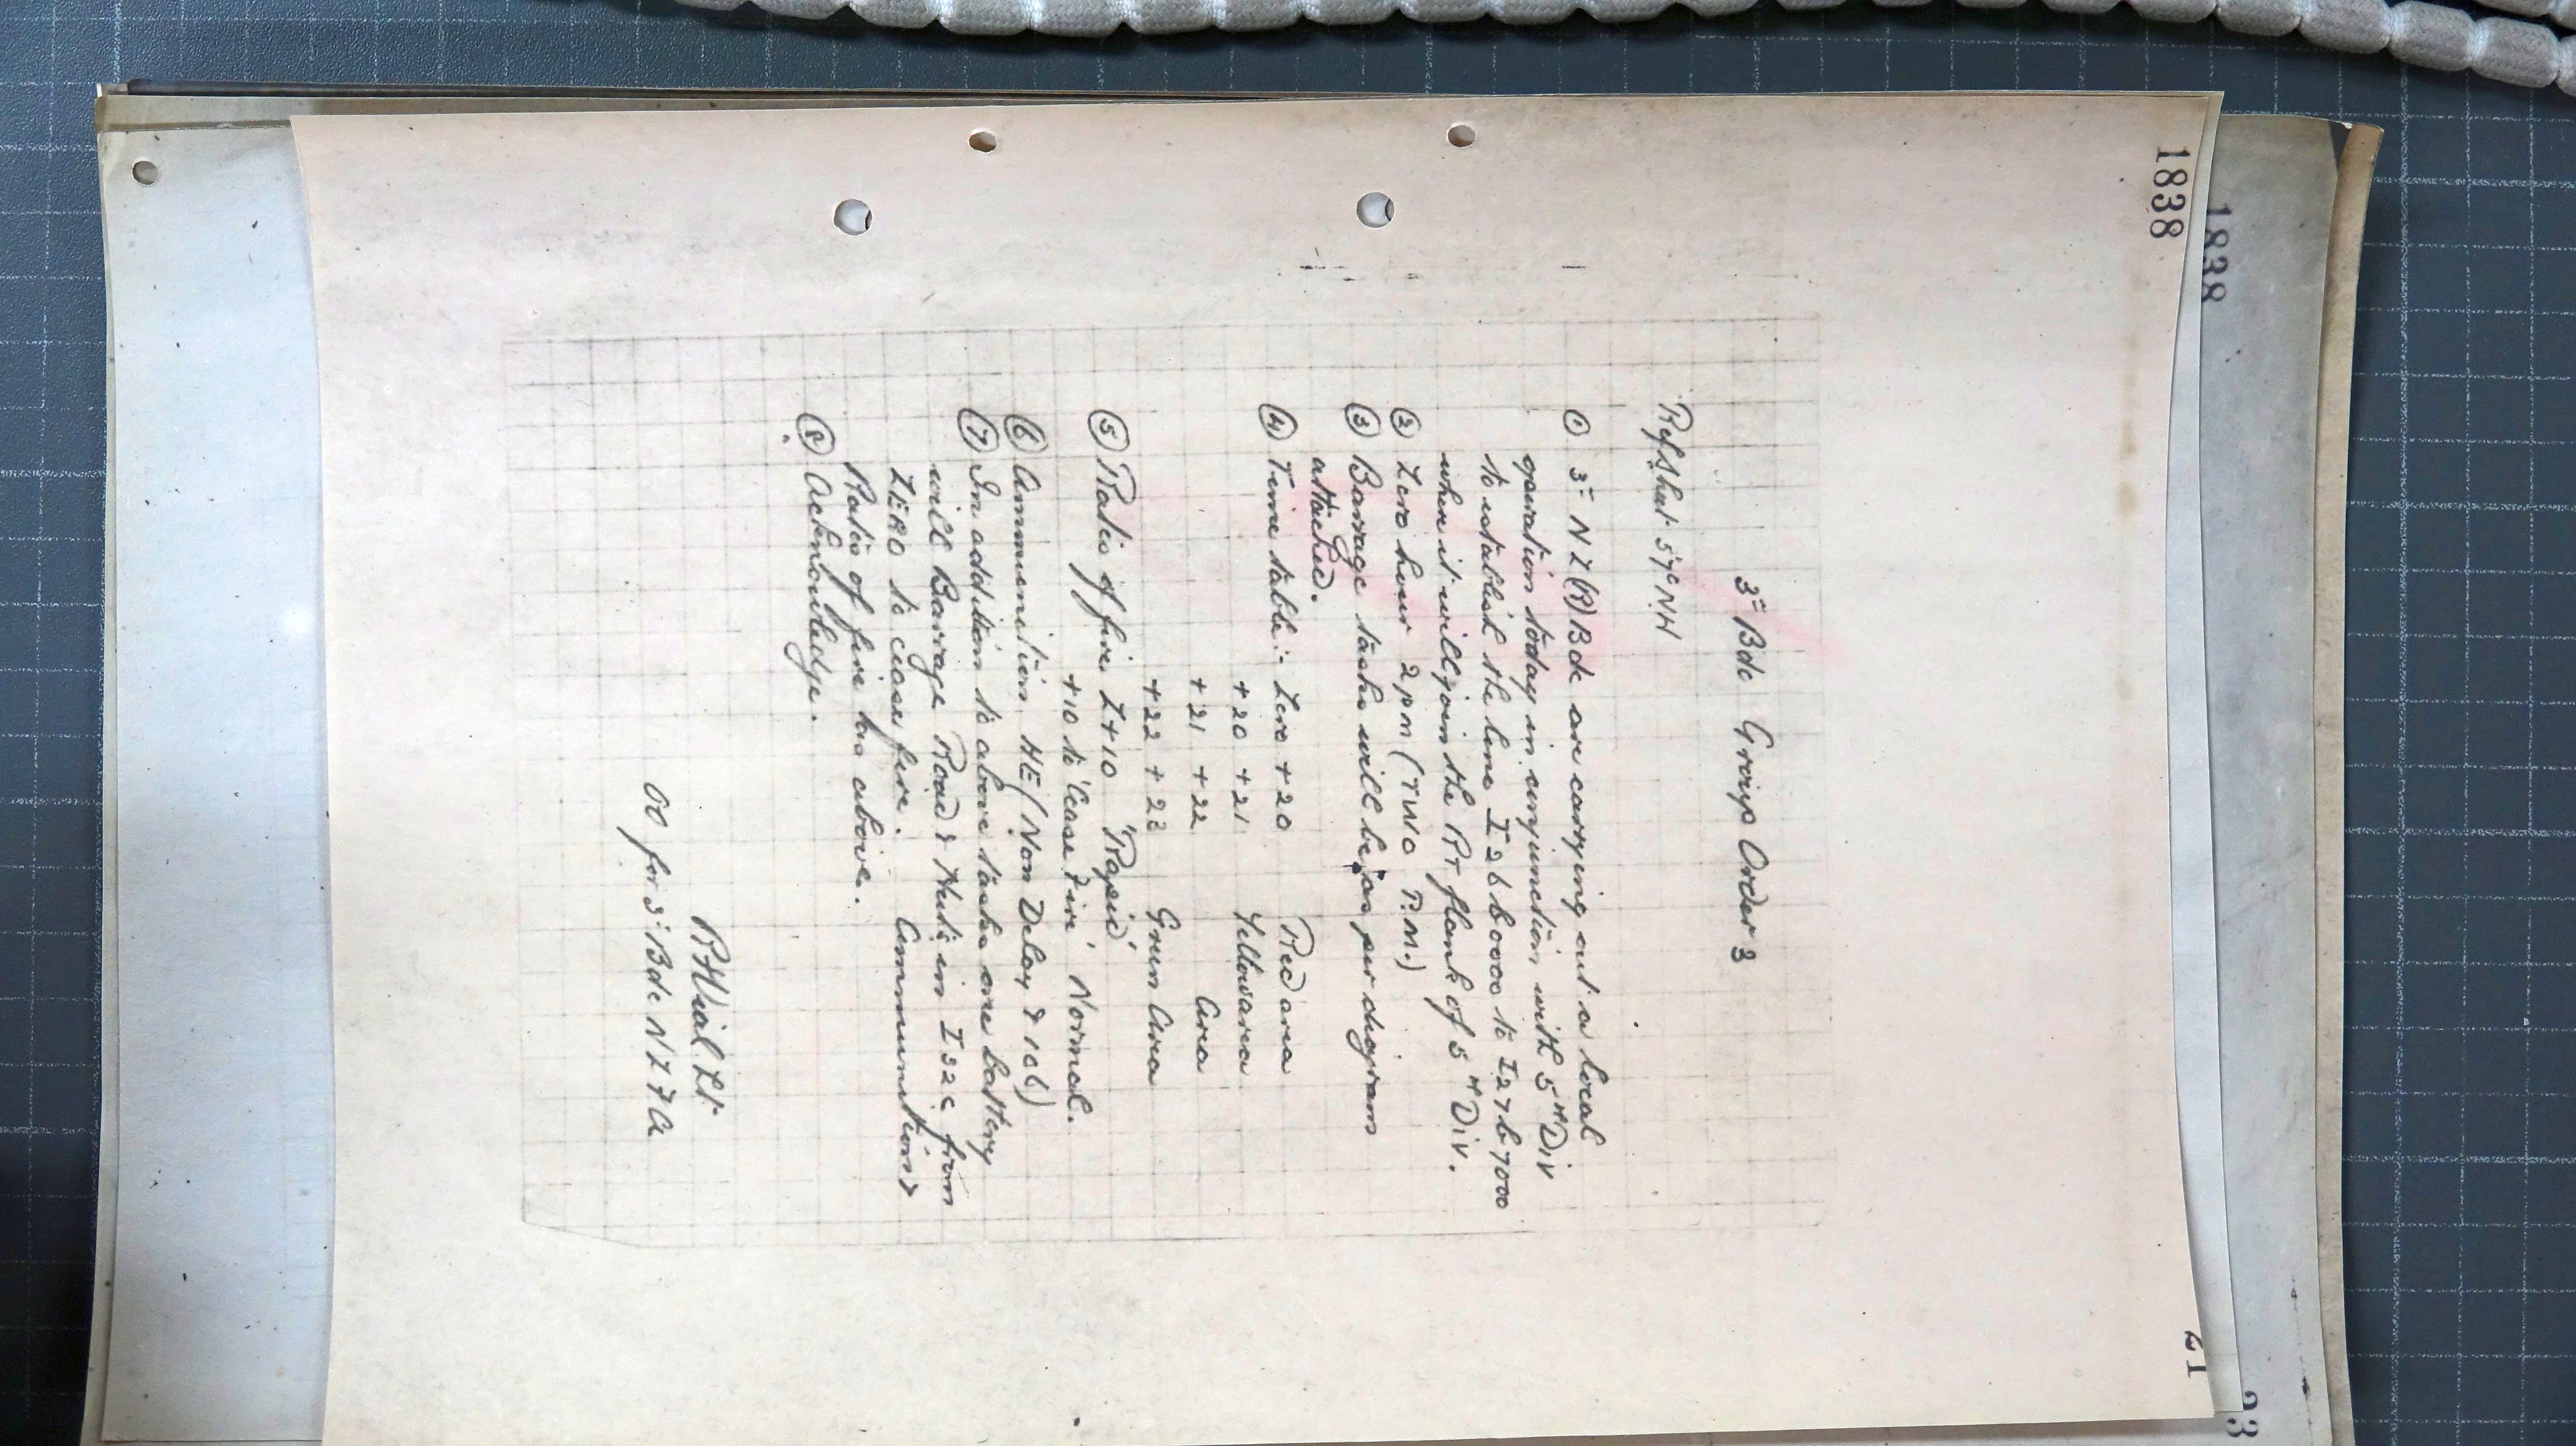 1838
1838
21
23
3= Bde Group Order 3
Ref Sheet 57c NW
① 3= NZ (R) Bde are carrying out a local
operation today in conjunction with 5th Div
to establish the line I 26 b 0000 to I 27 b 7000
when it will join the Rt flank of 5th Div.
② Zero hour 2 pm (TWO P.M.)
③ Barrage tasks will be as per diagram
attached.
④ Time table:- Zero + 20 Red area
+20 +21 Yellow area
+21 +22 Area
+22 +23 Green Area
⑤ Rates of fire Z+10 'Rapid'
+10 to 'Cease Fire' Normal.
⑥ Ammunition HE (Non Delay & 106)
⑦ In addition to above tasks one battery
will Barrage Road & Huts in I 32 c from
ZERO to cease fire. Ammunition &
Rates of fire as above.
⑧ Acknowledge.
Lt.
OO for 3= Bde NZFA